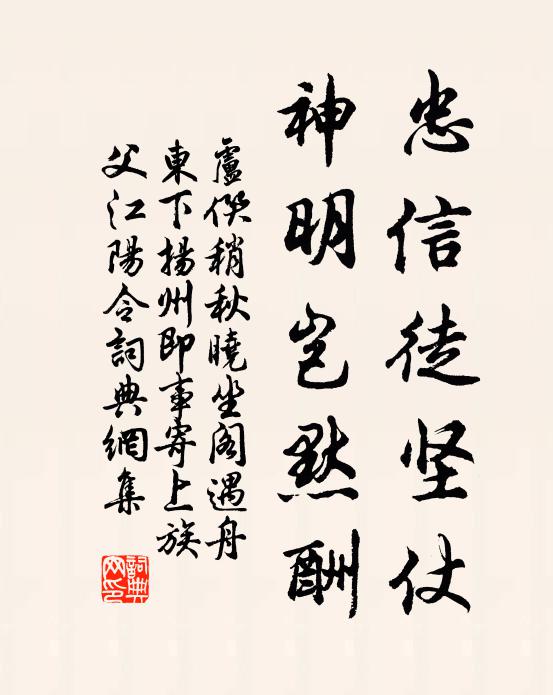 忠信徒坚仗
神明岂默酬
盧僎稍秋曉坐阁遇舟
東下揚州即事寄上族
父江陽令詞典網集
詞典网印